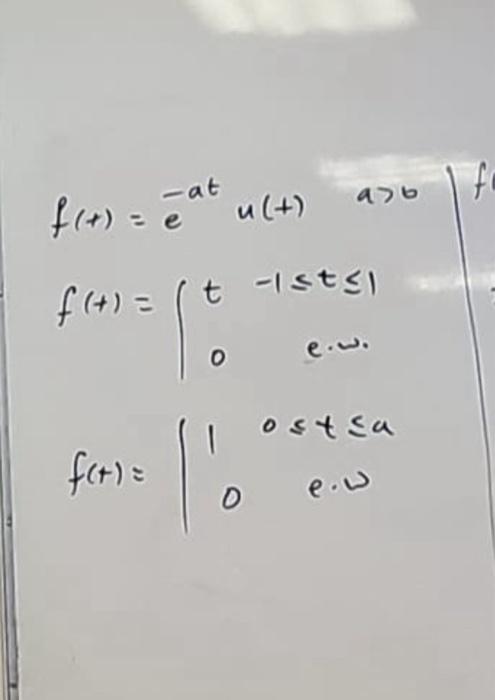 f(t) = e^{-at} u(t) a>0 | f(
f(t) = { t -1≤t≤1
0 e.w.
f(t) = { 1 0≤t≤a
0 e.w